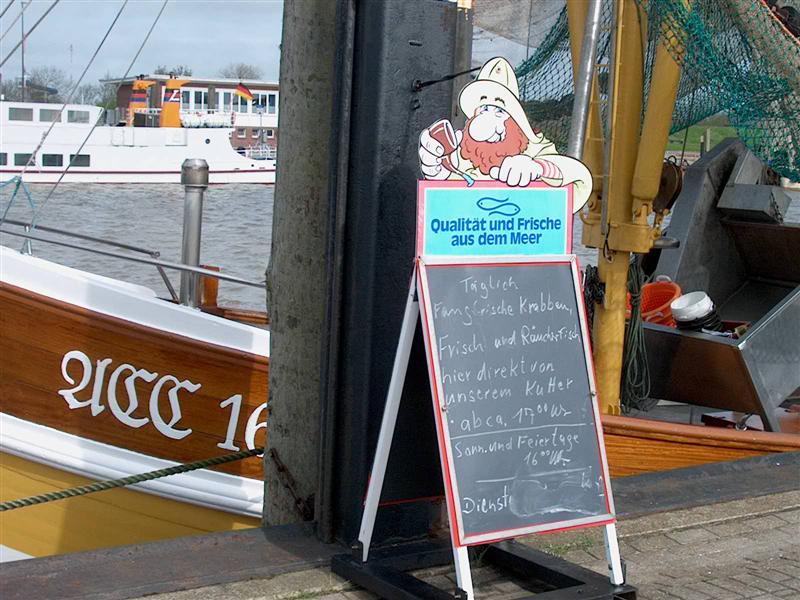 Qualität und Frische
aus dem Meer
Täglich
Fangfrische Krabben,
Frisch und Räucherfisch
hier direkt von
unserem Kutter
ab ca. 17⁰⁰ Uhr
Sonn. und Feiertage
16⁰⁰ Uhr
Dienst
ACC 16